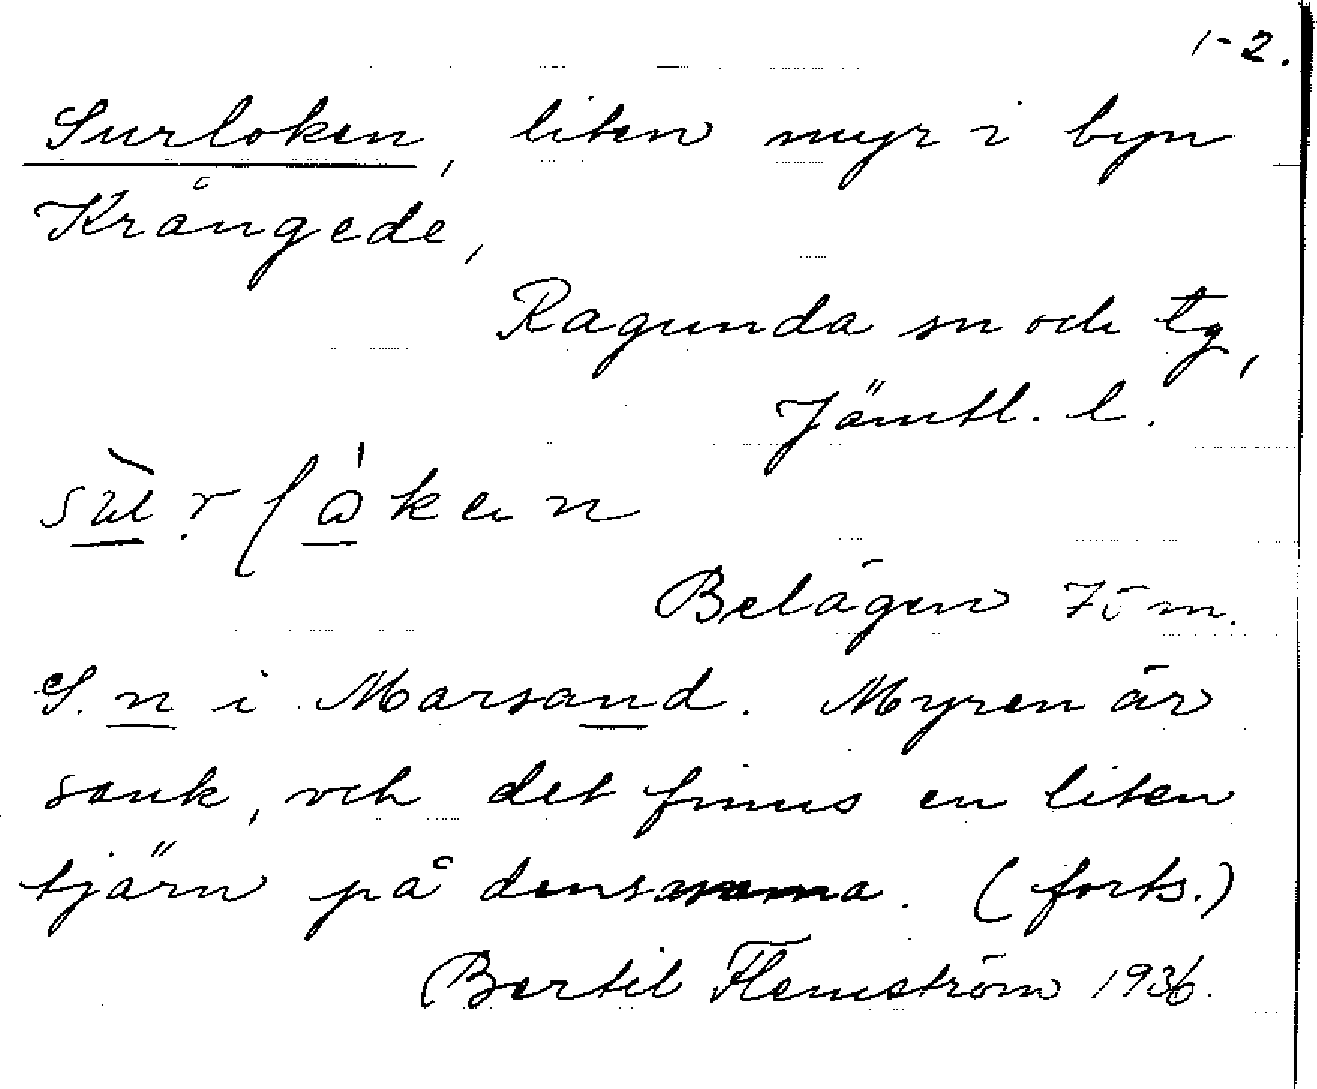 1-2.
Surloken, liten myr i byn
Krångede,
Ragunda sn och tg,
Jämtl. l.
Belägen 75 m.
S. n i Marsand. Myren är
sank, och det finns en liten
tjärn på densamma. (forts.)
Bertil Flemström 1936.